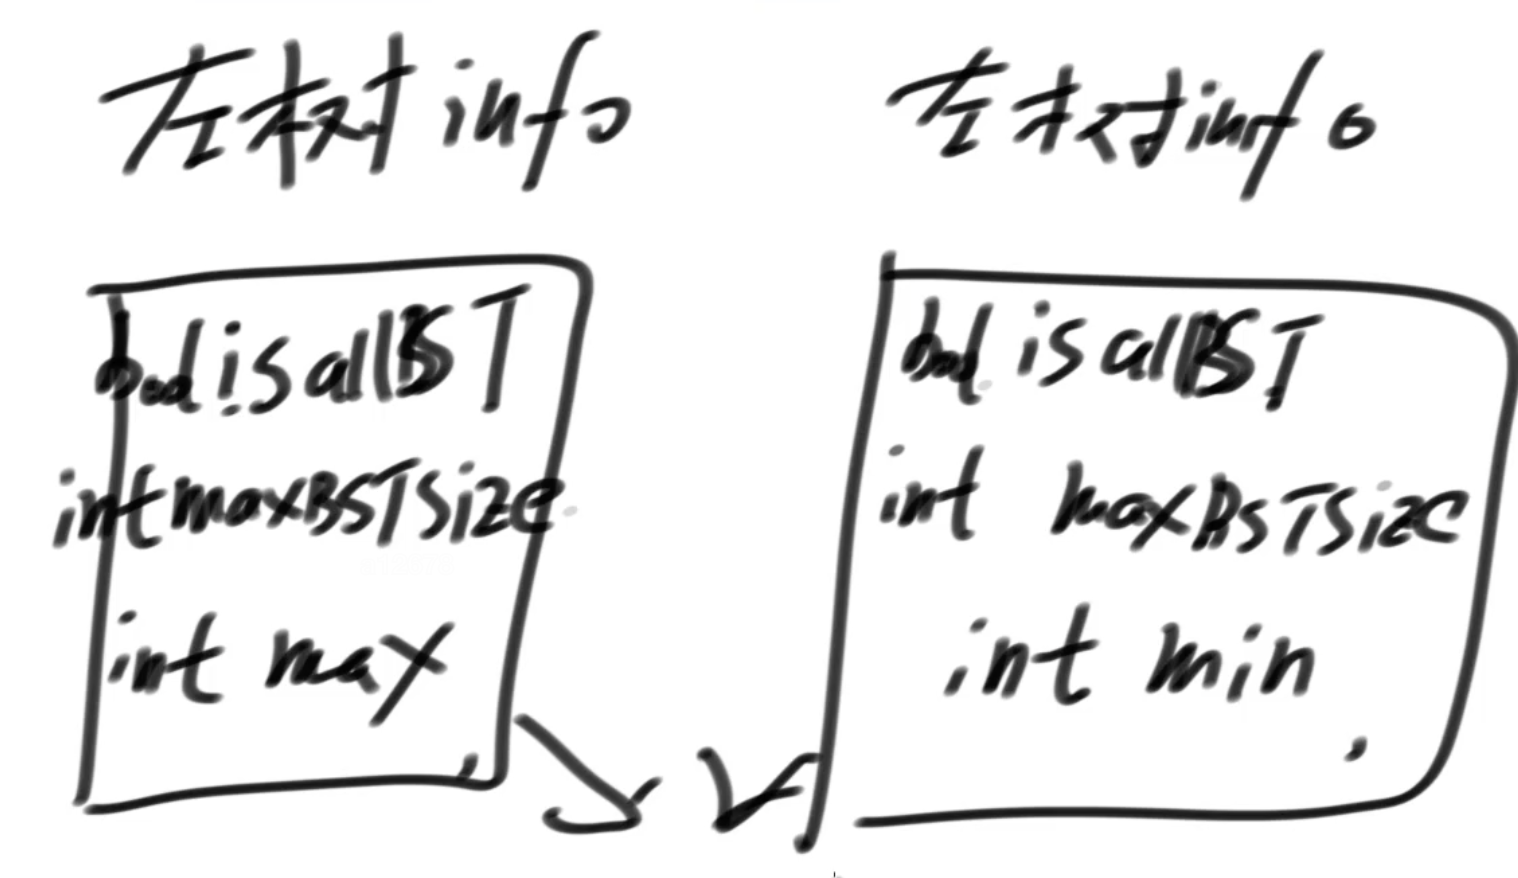 左树info
左树info
bool isallBST
int maxBSTSize
int max
bool isallBST
int maxBSTSize
int min